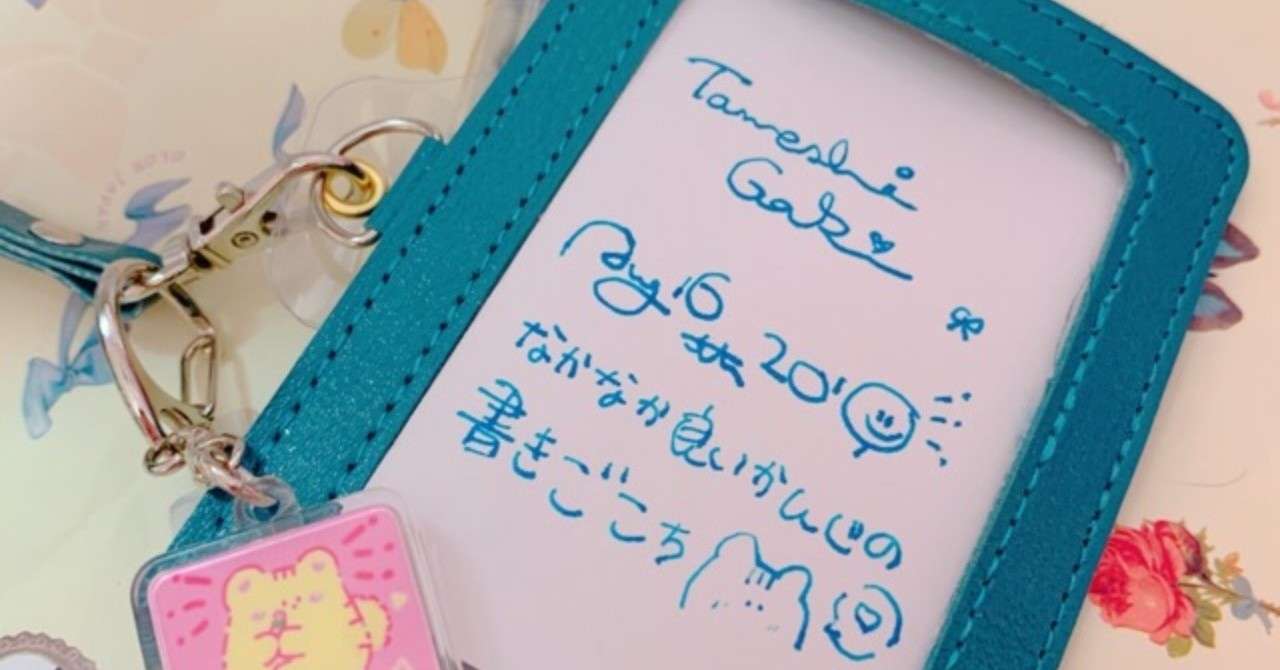 Tameshi
Gaki
Aug 16
20'
なかなか良いかんじの
書きごこち